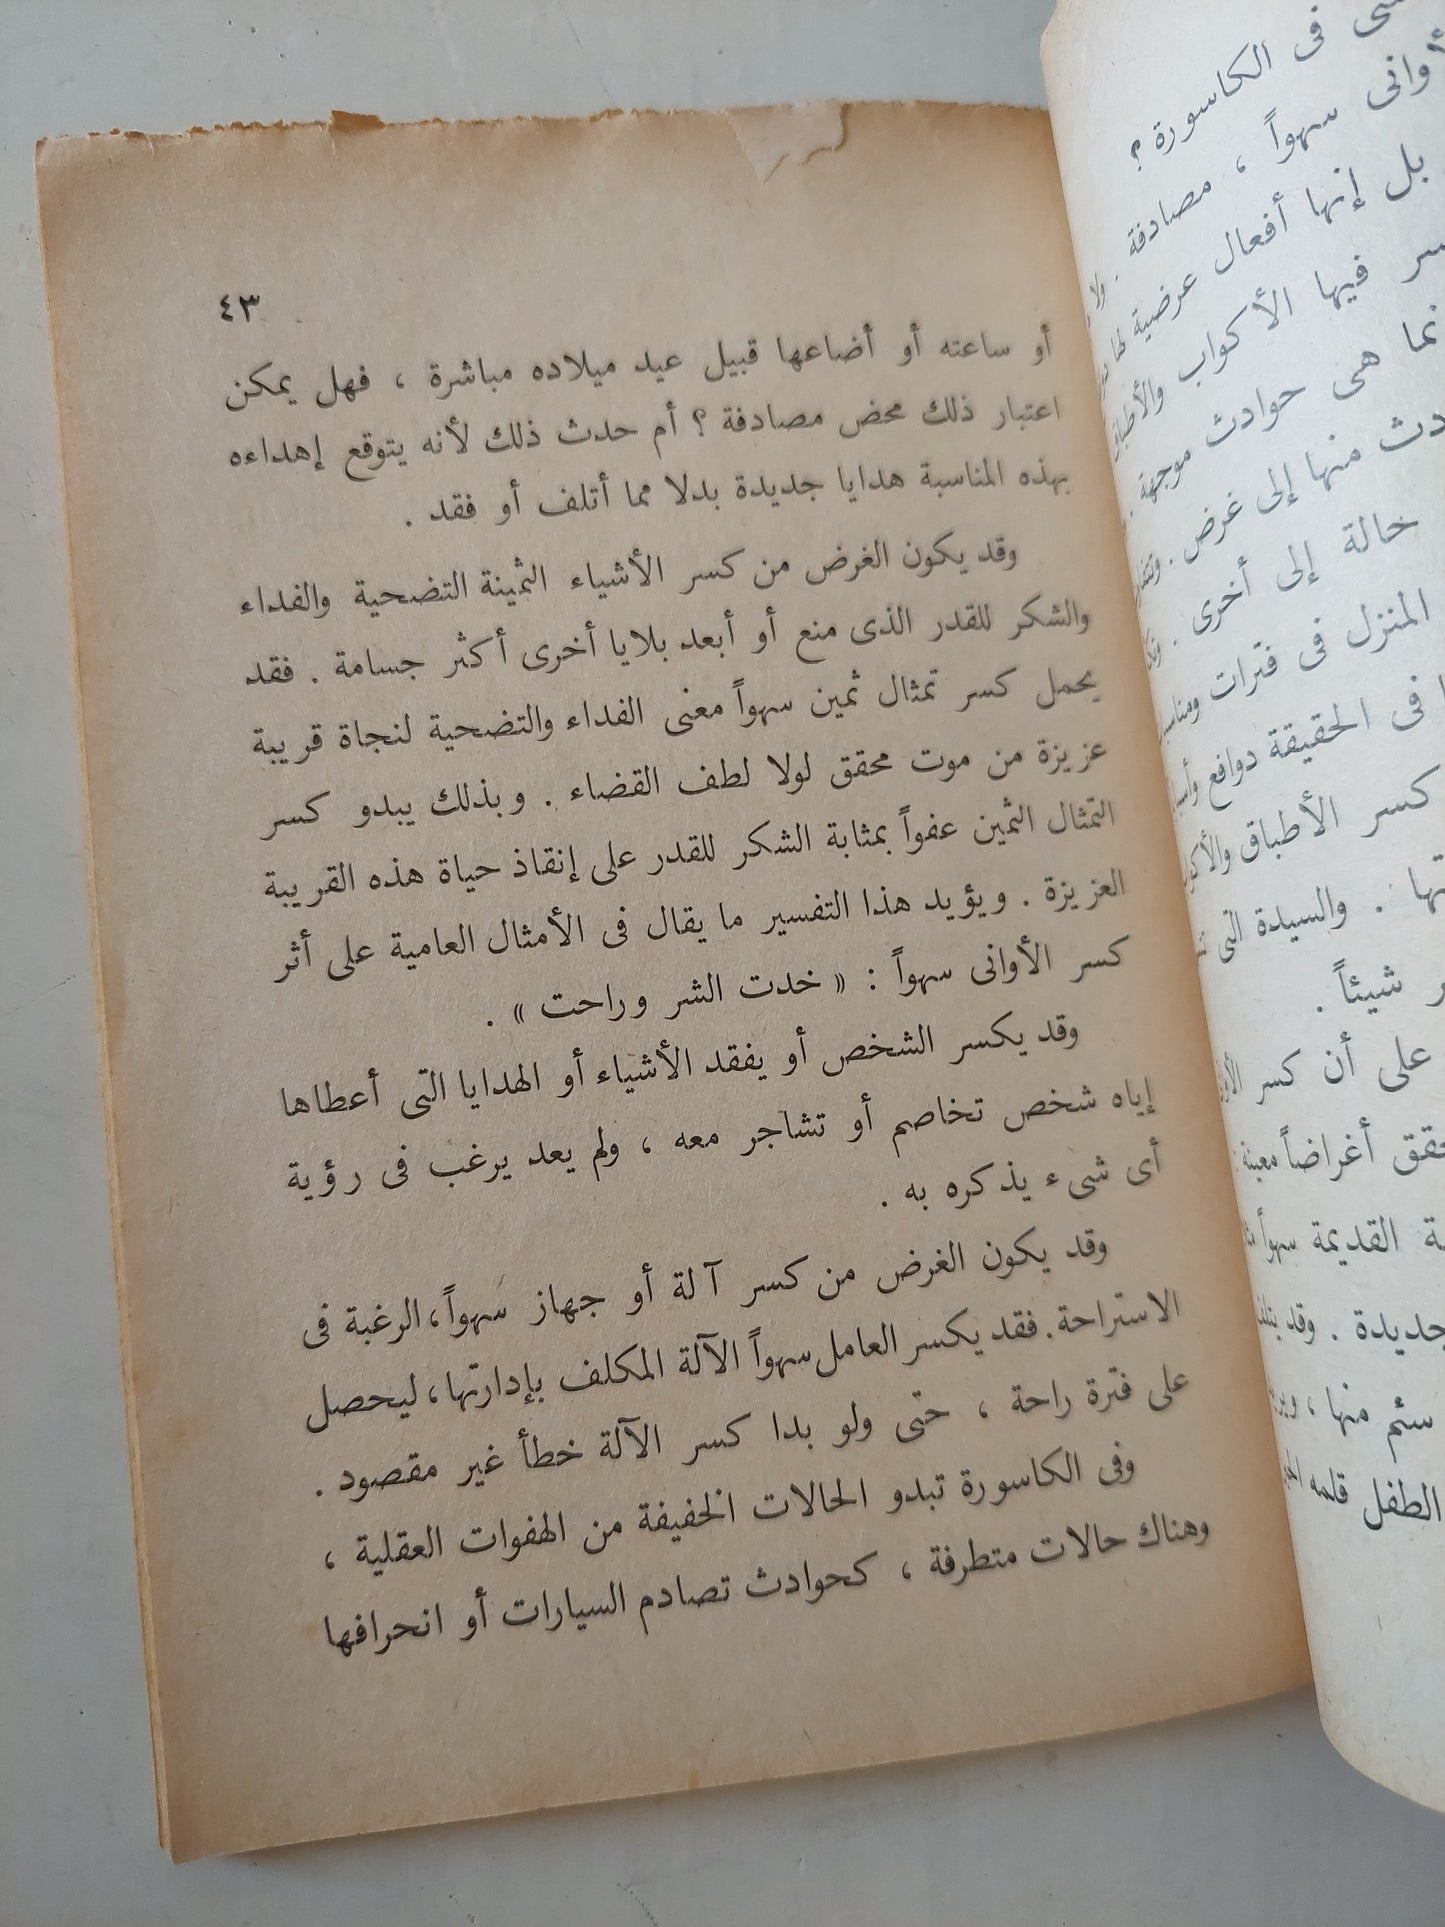 فى الكاسورة ؟
أوانى سهواً ، مصادفة .
بل إنها أفعال عرضية لها
فيها الأكواب والأطباق
هى حوادث موجهة .
منها إلى غرض .
حالة إلى أخرى .
المنزل فى فترات
فى الحقيقة دوافع
كسر الأطباق
. والسيدة التى
شيئاً .
على أن كسر
أغراضاً معينة
القديمة سهواً
. وقد
سئم منها ،
الطفل قلمه
٤٣
أو ساعته أو أضاعها قبيل عيد ميلاده مباشرة ، فهل يمكن
اعتبار ذلك محض مصادفة ؟ أم حدث ذلك لأنه يتوقع إهداءه
بهذه المناسبة هدايا جديدة بدلا مما أتلف أو فقد .
وقد يكون الغرض من كسر الأشياء الثمينة التضحية والفداء
والشكر للقدر الذى منع أو أبعد بلايا أخرى أكثر جسامة . فقد
يحمل كسر تمثال ثمين سهواً معنى الفداء والتضحية لنجاة قريبة
عزيزة من موت محقق لولا لطف القضاء . وبذلك يبدو كسر
التمثال الثمين عفواً بمثابة الشكر للقدر على إنقاذ حياة هذه القريبة
العزيزة . ويؤيد هذا التفسير ما يقال فى الأمثال العامية على أثر
كسر الأوانى سهواً : « خدت الشر وراحت » .
وقد يكسر الشخص أو يفقد الأشياء أو الهدايا التى أعطاها
إياه شخص تخاصم أو تشاجر معه ، ولم يعد يرغب فى رؤية
أى شىء يذكره به .
وقد يكون الغرض من كسر آلة أو جهاز سهواً ، الرغبة فى
الاستراحة . فقد يكسر العامل سهواً الآلة المكلف بإدارتها ، ليحصل
على فترة راحة ، حتى ولو بدا كسر الآلة خطأ غير مقصود .
وفى الكاسورة تبدو الحالات الخفيفة من الهفوات العقلية ،
وهناك حالات متطرفة ، كحوادث تصادم السيارات أو انحرافها